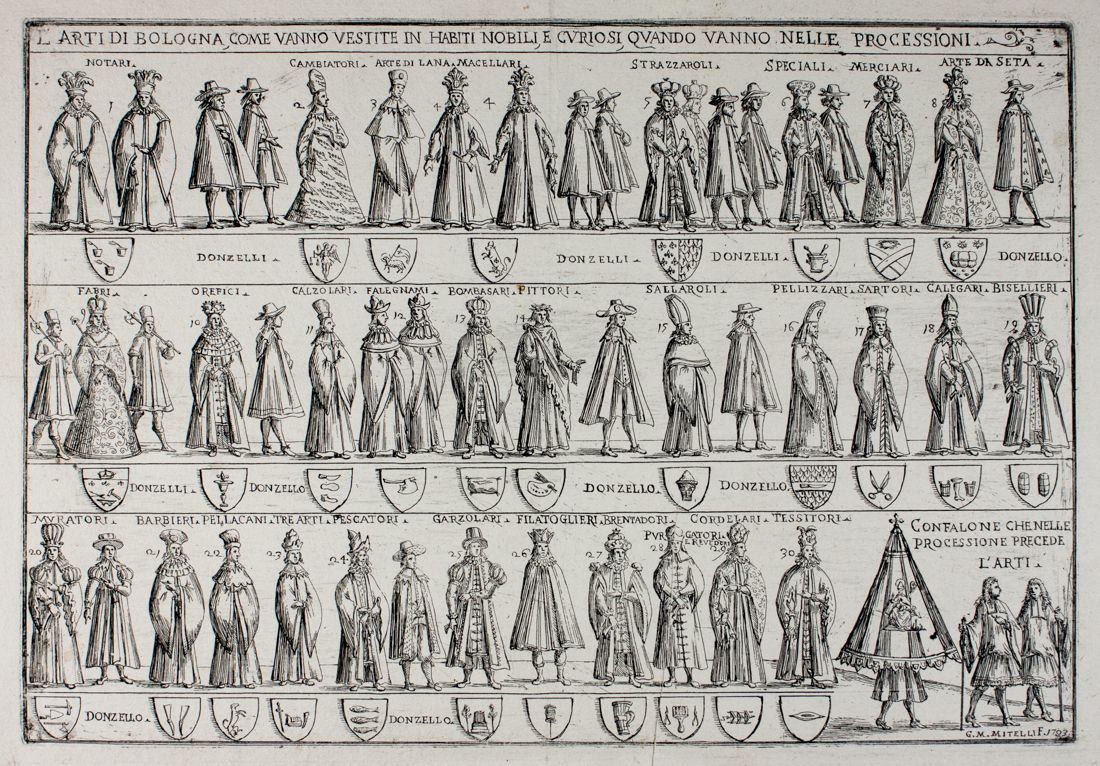 L'ARTI DI BOLOGNA COME VANNO VESTITE IN HABITI NOBILI, E CVRIOSI QVANDO VANNO NELLE PROCESSIONI.
NOTARI. CAMBIATORI. ARTE DI LANA. MACELLARI. STRAZZAROLI. SPECIALI. MERCIARI. ARTE DA SETA.
1 2 3 4 4 5 6 7 8
DONZELLI. DONZELLI. DONZELLI. DONZELLO.
FABRI. OREFICI. CALZOLARI. FALEGNAMI. BOMBASARI. PITTORI. SALLAROLI. PELLIZZARI. SARTORI. CALEGARI. BISELLIERI.
9 10 11 12 13 14 15 16 17 18 19
DONZELLI. DONZELLO DONZELLO. DONZELLO.
MVRATORI. BARBIERI. PELLACANI. TRE ARTI. PESCATORI. GARZOLARI. FILATOGLIERI. BRENTADORI. CORDELARI. TESSITORI.
PVRGATORI.
20 21 22 23 24 25 26 27 28 29 30
CONFALONE CHE NELLE
PROCESSIONE PRECEDE
L'ARTI.
DONZELLO. DONZELLO.
G. M. MITELLI F.